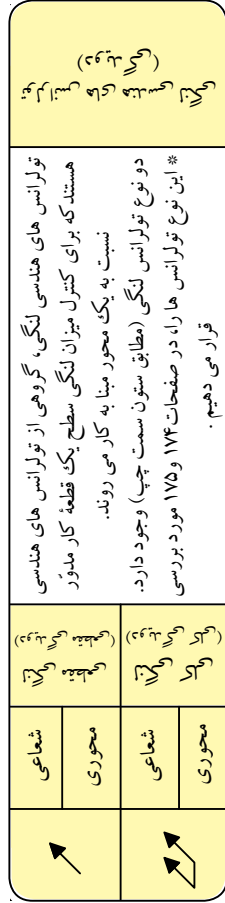 تولرانس های هندسی لنگی
(دویدگی)
تولرانس های هندسی لنگی، گروهی از تولرانس های هندسی
هستند که برای کنترل میزان لنگی سطح یک قطعهٔ کار مدوّر
نسبت به یک محور مبنا به کار می روند.
دو نوع تولرانس لنگی (مطابق ستون سمت چپ) وجود دارد.
* این نوع تولرانس ها را، در صفحات ۱۷۴ و ۱۷۵ مورد بررسی
قرار می دهیم .
لنگی مقطعی
(دویدگی مقطعی)
شعاعی
محوری
لنگی کلی
(دویدگی کلی)
شعاعی
محوری